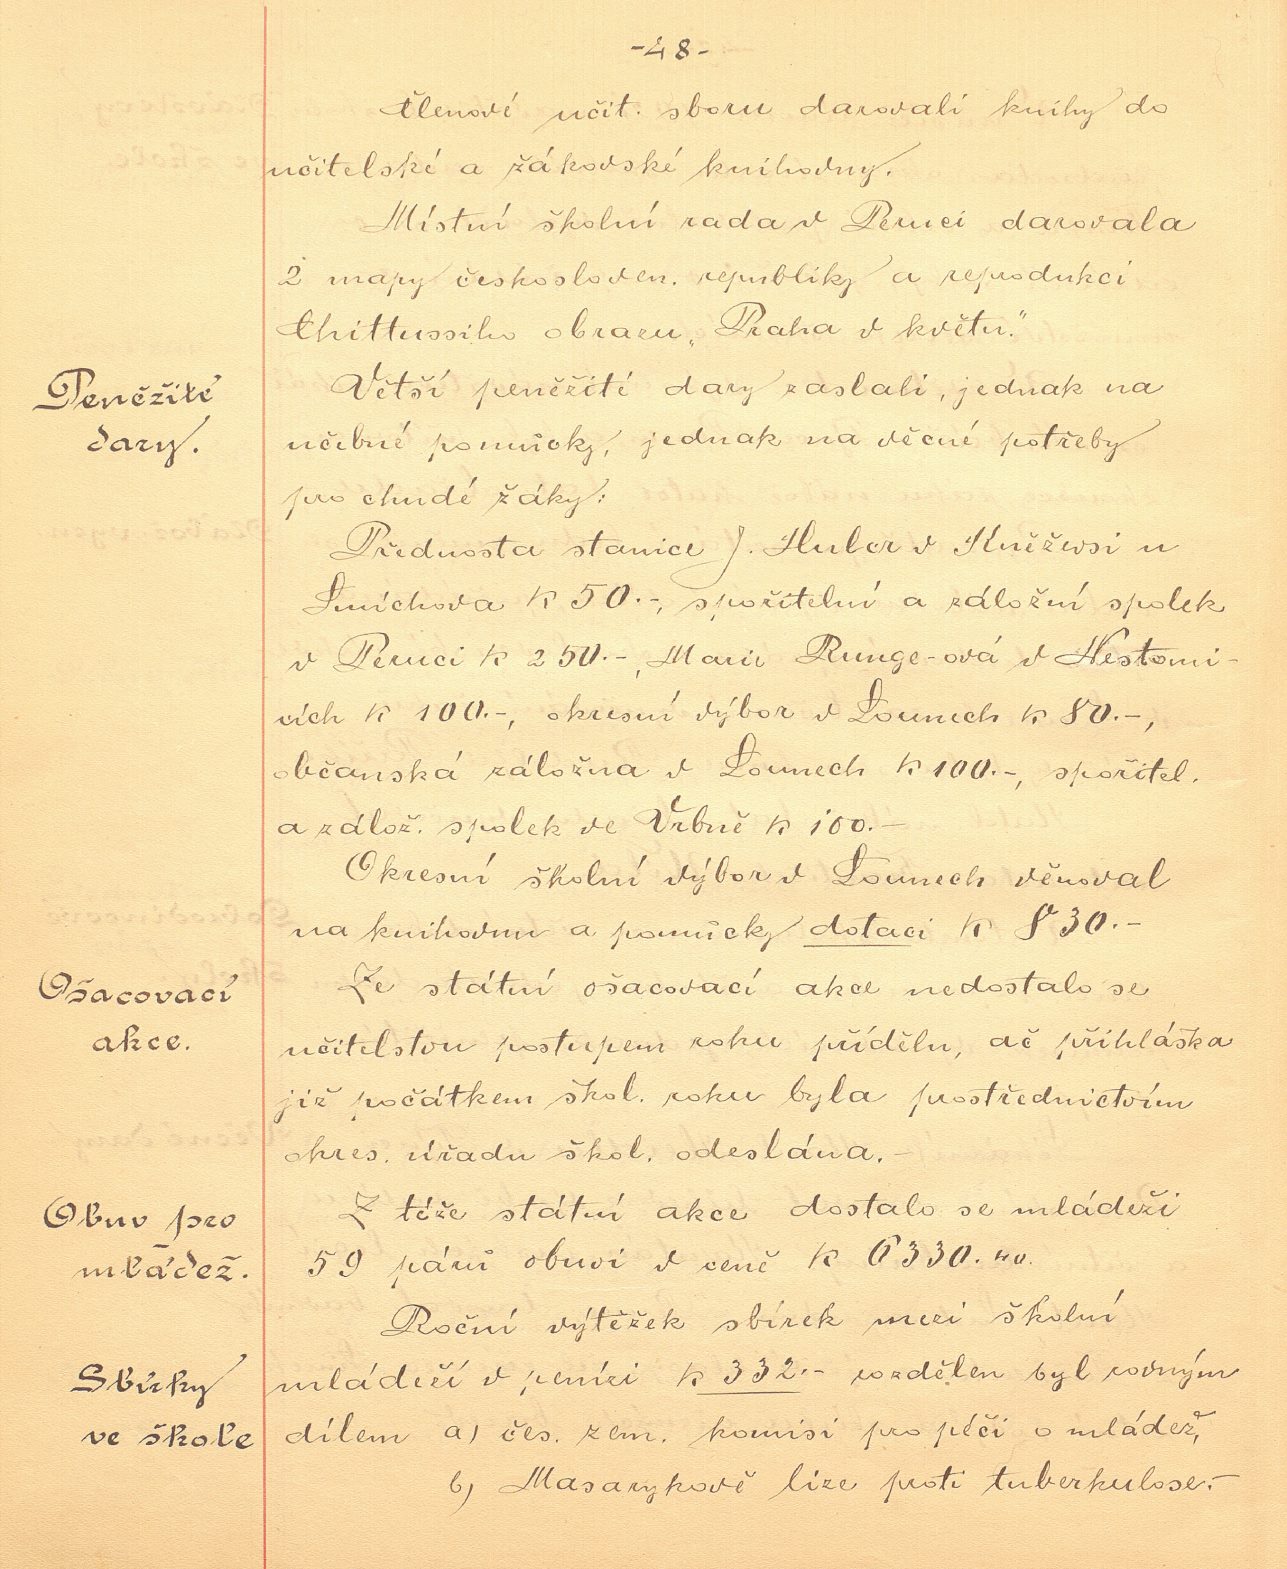 -48-
Členové učit. sboru darovali knihy do
učitelské a žákovské knihovny.
Místní školní rada v Peruci darovala
2 mapy českosloven. republiky a reprodukci
Chittussiho obrazu „Praha v květu."
Peněžité
dary.
Větší peněžité dary zaslali, jednak na
učebné pomůcky, jednak na věcné potřeby
pro chudé žáky:
Přednosta stanice J. Huber v Kněževsi u
Smíchova K 50.-, spořitelní a záložní spolek
v Peruci K 250.-, Marie Runge-ová v Nestomi-
cích K 100.-, okresní výbor v Lounech K 80.-,
občanská záložna v Lounech K 100.-, spořitel.
a zálož. spolek ve Vrbně K 100.-
Okresní školní výbor v Lounech věnoval
na knihovnu a pomůcky dotaci K 830.-
Ošacovací
akce.
Ze státní ošacovací akce nedostalo se
učitelstvu postupem roku přídělu, ač přihláška
již počátkem škol. roku byla prostřednictvím
okres. úřadu škol. odeslána.-
Obuv pro
mládež.
Z téže státní akce dostalo se mládeži
59 párů obuvi v ceně K 6330.40.
Roční výtěžek sbírek mezi školní
Sbírky
ve škole
mládeží v penízi K 332.- rozdělen byl rovným
dílem a) čes. zem. komisi pro péči o mládež,
b) Masarykově lize proti tuberkulose.-